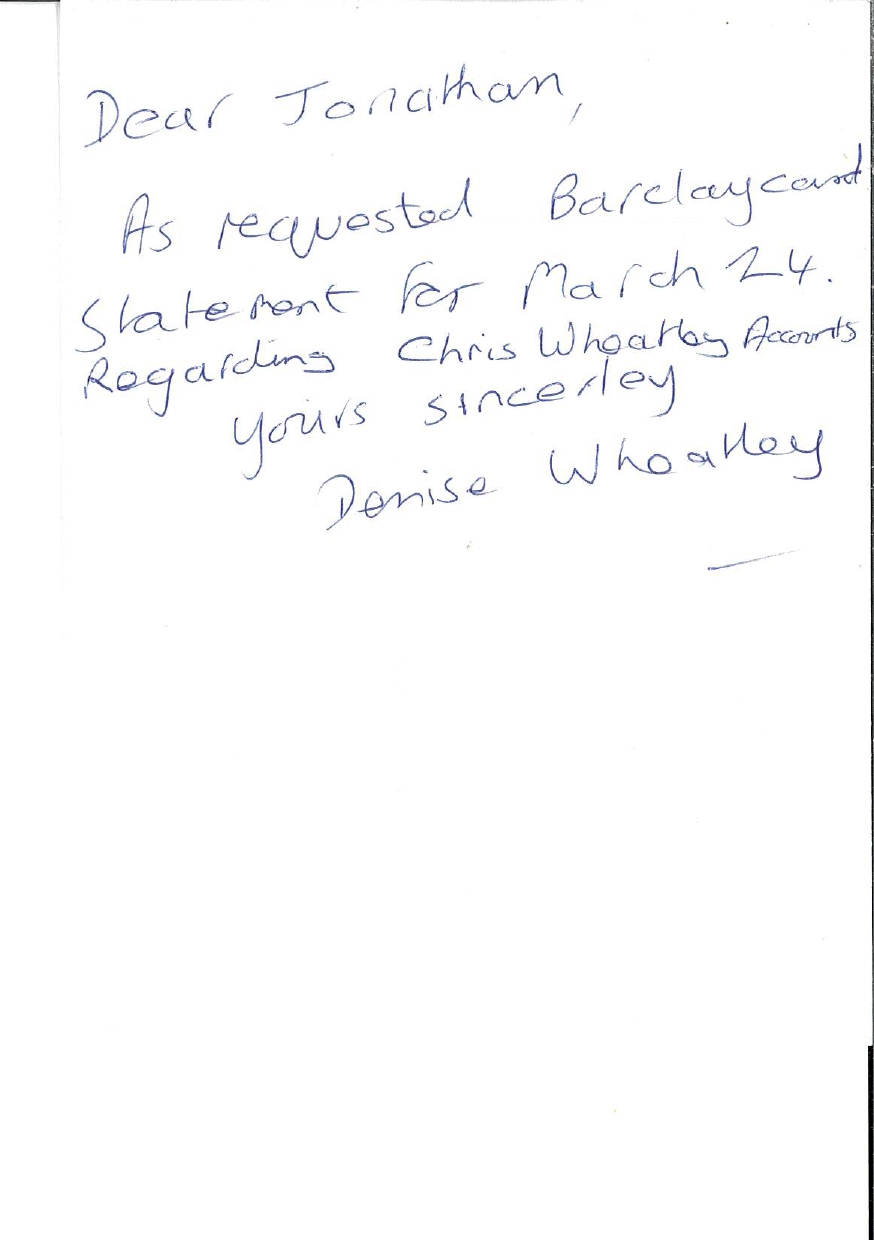 Dear Jonathan,
As requested Barclaycard
Statement for March 24.
Regarding Chris Wheatley Accounts
yours sincerley
Denise Wheatley